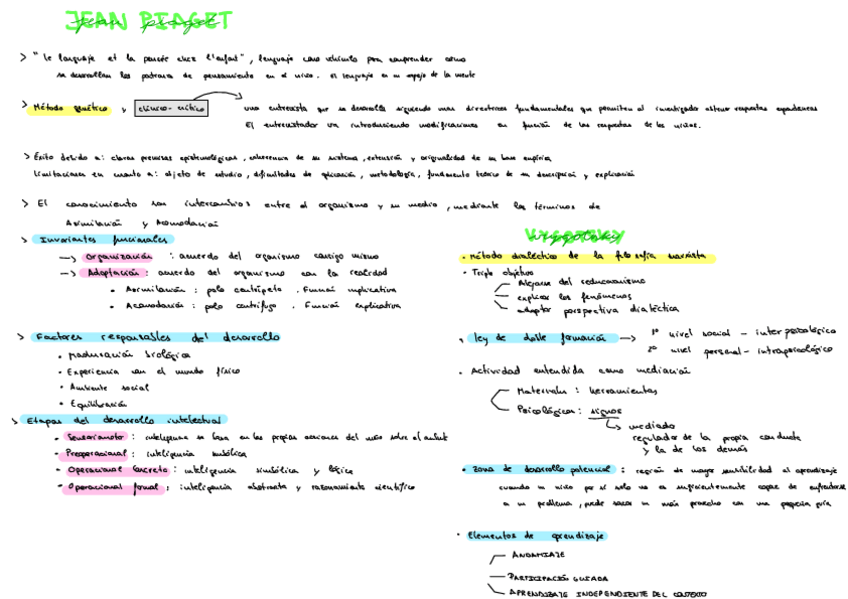 JEAN PIAGET
> "Le language et la pensée chez l'enfant", lenguaje como vehículo para comprender como
se desarrollan los patrones de pensamiento en el niño. el lenguaje es un espejo de la mente
> Método genético y clínico-crítico → una entrevista que se desarrolla siguiendo unas directrices fundamentales que permiten al investigador obtener respuestas espontáneas
El entrevistador va introduciendo modificaciones en función de las respuestas de los niños.
> Éxito debido a: claras premisas epistemológicas, coherencia de su sistema, extensión y originalidad de su base empírica
Limitaciones en cuanto a: objeto de estudio, dificultades de aplicación, metodología, fundamento teórico de su descripción y explicación
> El conocimiento son intercambios entre el organismo y su medio, mediante los términos de
Asimilación y Acomodación
> Invariantes funcionales
→ Organización: acuerdo del organismo consigo mismo
→ Adaptación: acuerdo del organismo con la realidad
• Asimilación: polo centrípeto. Función implicativa
• Acomodación: polo centrífugo. Función explicativa
> Factores responsables del desarrollo
• Maduración biológica
• Experiencia con el mundo físico
• Ambiente social
• Equilibración
> Etapas del desarrollo intelectual
• Sensoriomotor: inteligencia se basa en las propias acciones del niño sobre el
• Preoperacional: inteligencia simbólica
• Operacional concreto: inteligencia simbólica y lógica
• Operacional formal: inteligencia abstracta y razonamiento científico
Vygotsky
• Método dialéctico de la filosofía marxista
• Triple objetivo
Alejarse del reduccionismo
explicar los fenómenos
adoptar perspectiva dialéctica
• ley de doble formación → 1º nivel social - interpsicológico
2º nivel personal - intrapsicológico
• Actividad entendida como mediación
Materiales: herramientas
Psicológicas: signos
mediado
regulador de la propia conducta
y la de los demás
• Zona de desarrollo potencial: región de mayor sensibilidad al aprendizaje
cuando un niño por sí solo no es suficientemente capaz de enfrentarse
a un problema, puede sacar un más provecho con una pequeña guía
• Elementos de aprendizaje
ANDAMIAJE
PARTICIPACIÓN GUIADA
APRENDIZAJE INDEPENDIENTE DEL CONTEXTO